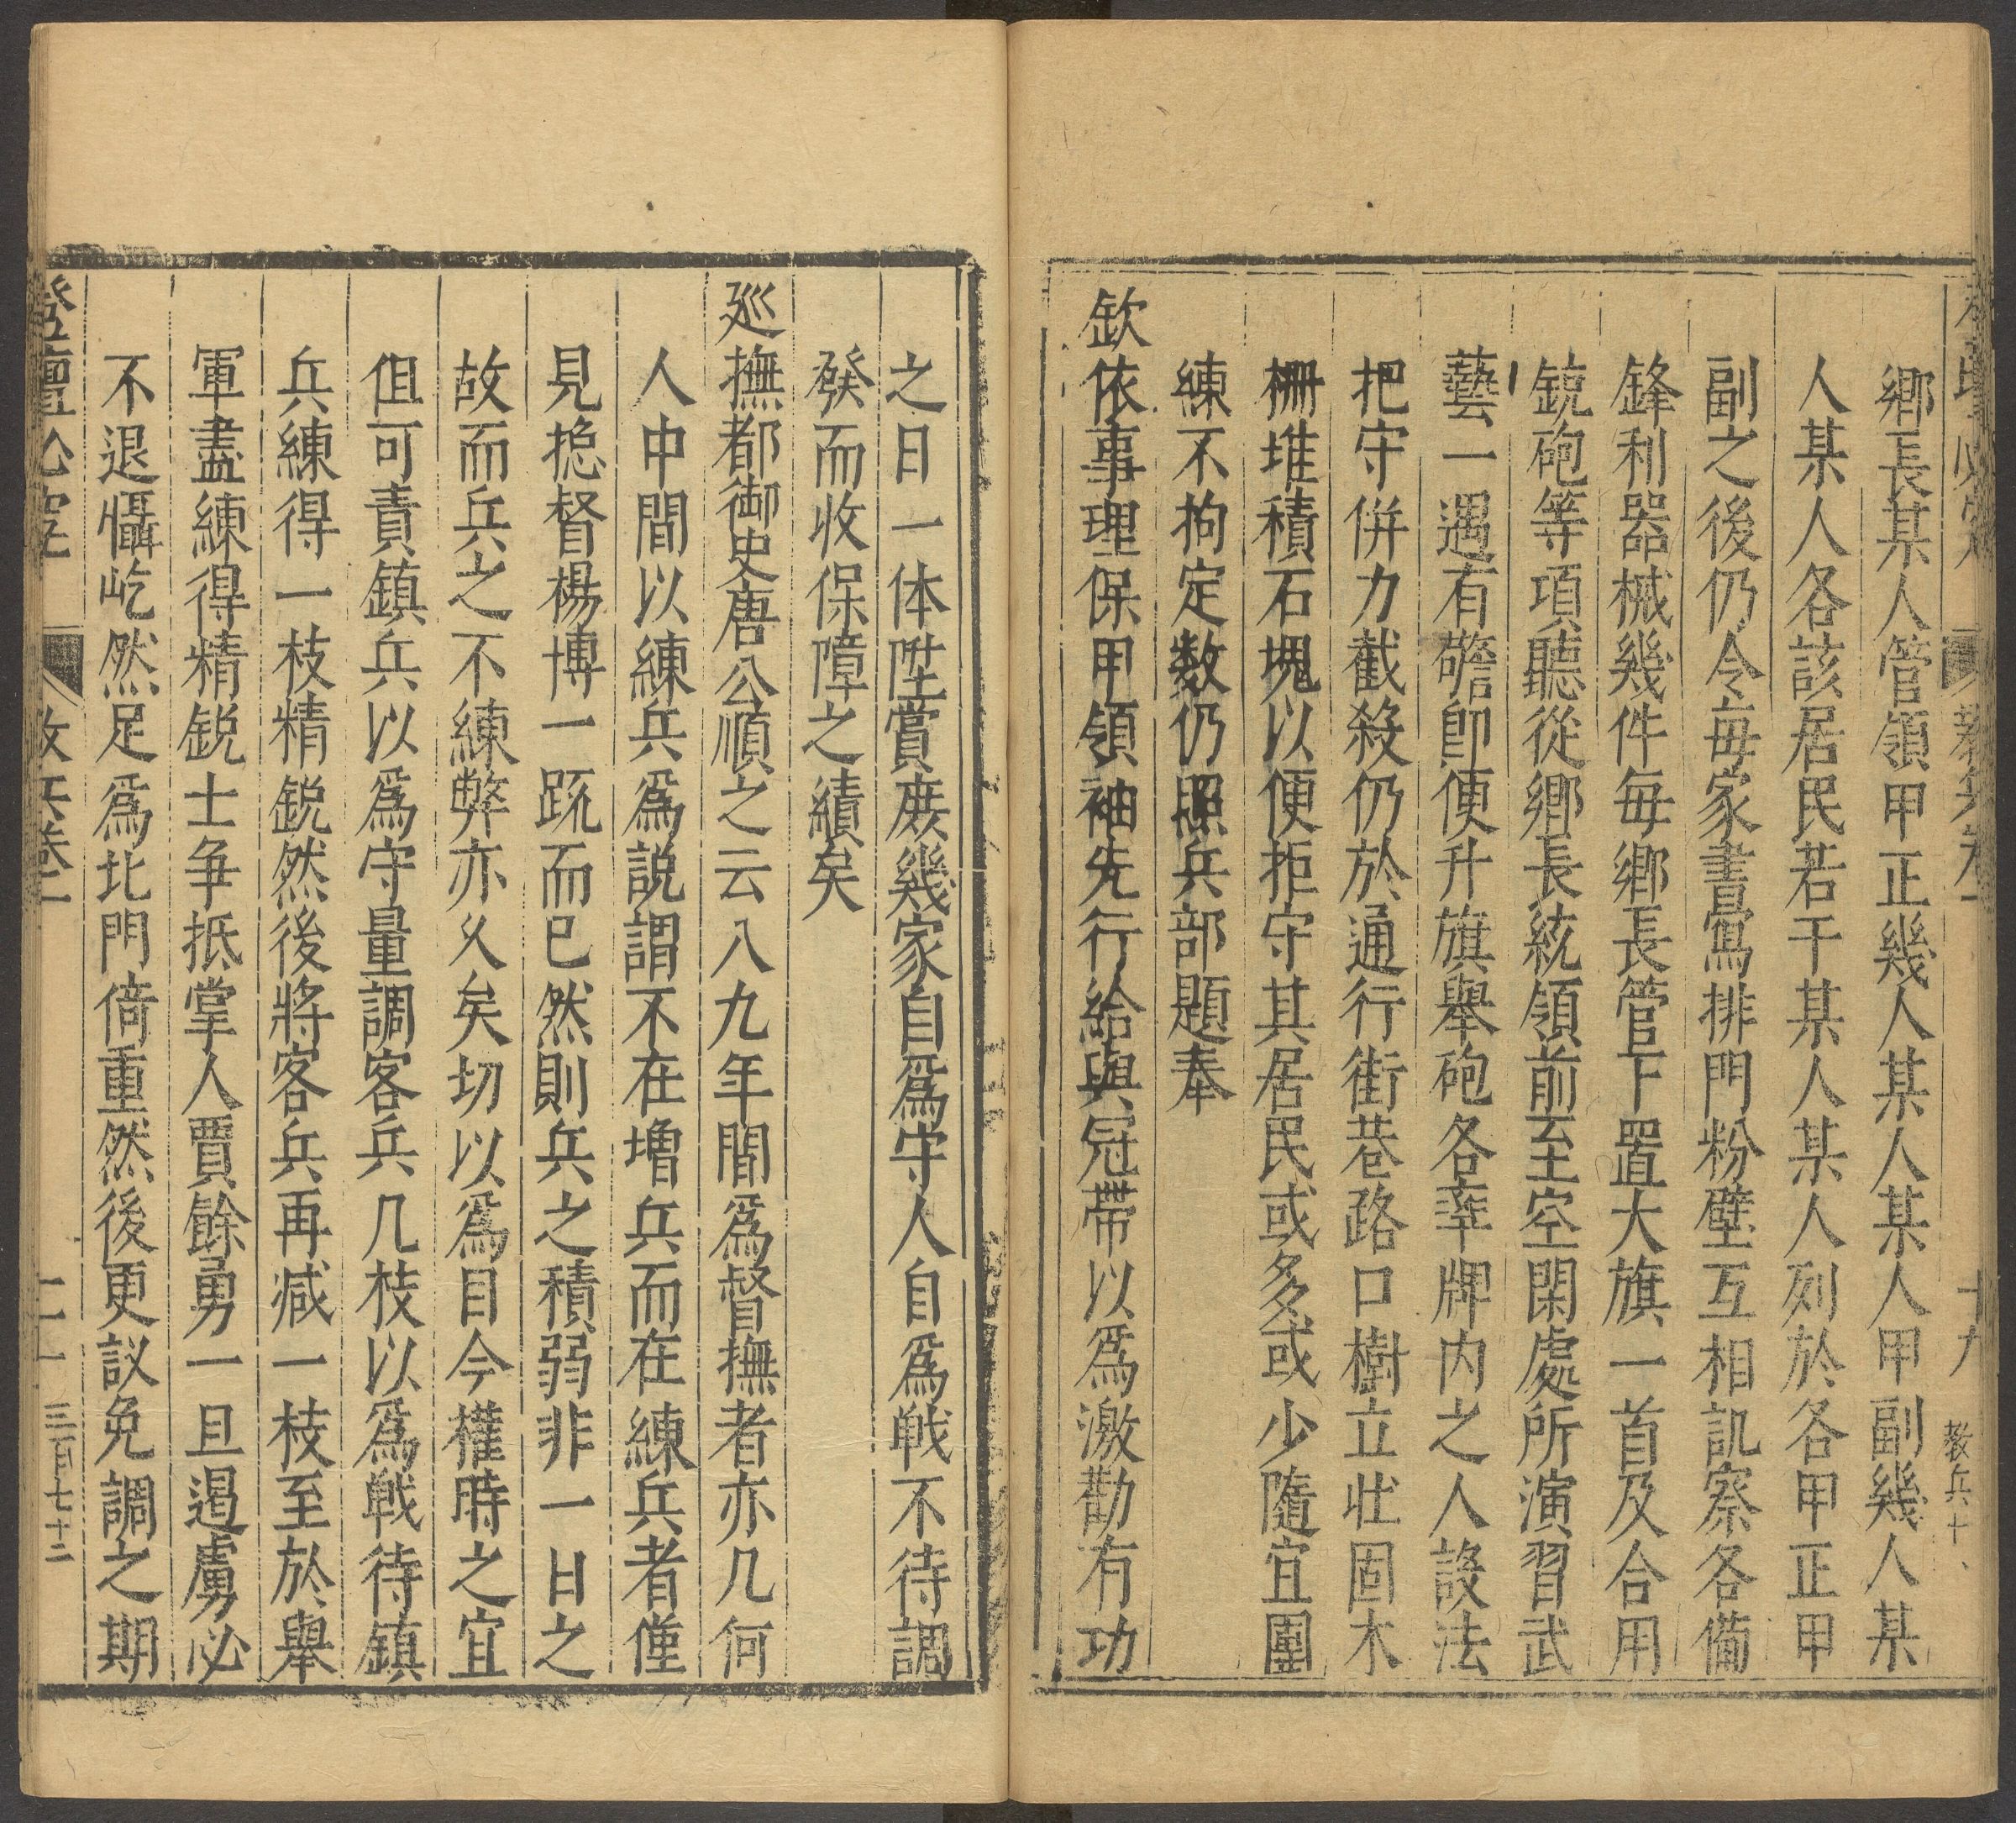 鄉長某人管領甲正幾人某人某人甲副幾人某
人某人各該居民若干某人某人列於各甲正甲
副之後仍令每家書寫排門粉壁互相譏察各備
鋒利器械幾件每鄉長管下置大旗一首及合用
銃砲等項聽從鄉長統領前至空閑處所演習武
藝一遇有警即便升旗舉砲各率牌内之人設法
把守併力截殺仍於通行街巷路口樹立壯固木
柵堆積石塊以便拒守其居民或多或少隨宜團
練不拘定數仍照兵部題奉
欽依事理保甲領袖先行給與冠帶以為激勸有功
教兵十
十九
之日一体陞賞庶幾家自為守人自為戰不待調
發而收保障之績矣
巡撫都御史唐公順之云八九年間為督撫者亦几何
人中間以練兵為説謂不在增兵而在練兵者僅
見捴督楊博一䟽而已然則兵之積弱非一日之
故而兵之不練弊亦久矣切以為目今權時之宜
但可責鎮兵以為守量調客兵几枝以為戰待鎮
兵練得一枝精鋭然後將客兵再减一枝至於舉
軍盡練得精鋭士争抵掌人賈餘勇一旦遏虜必
不退懾屹然足為北門倚重然後更議免調之期
登壇必究
教兵卷二
二一
三百七十二